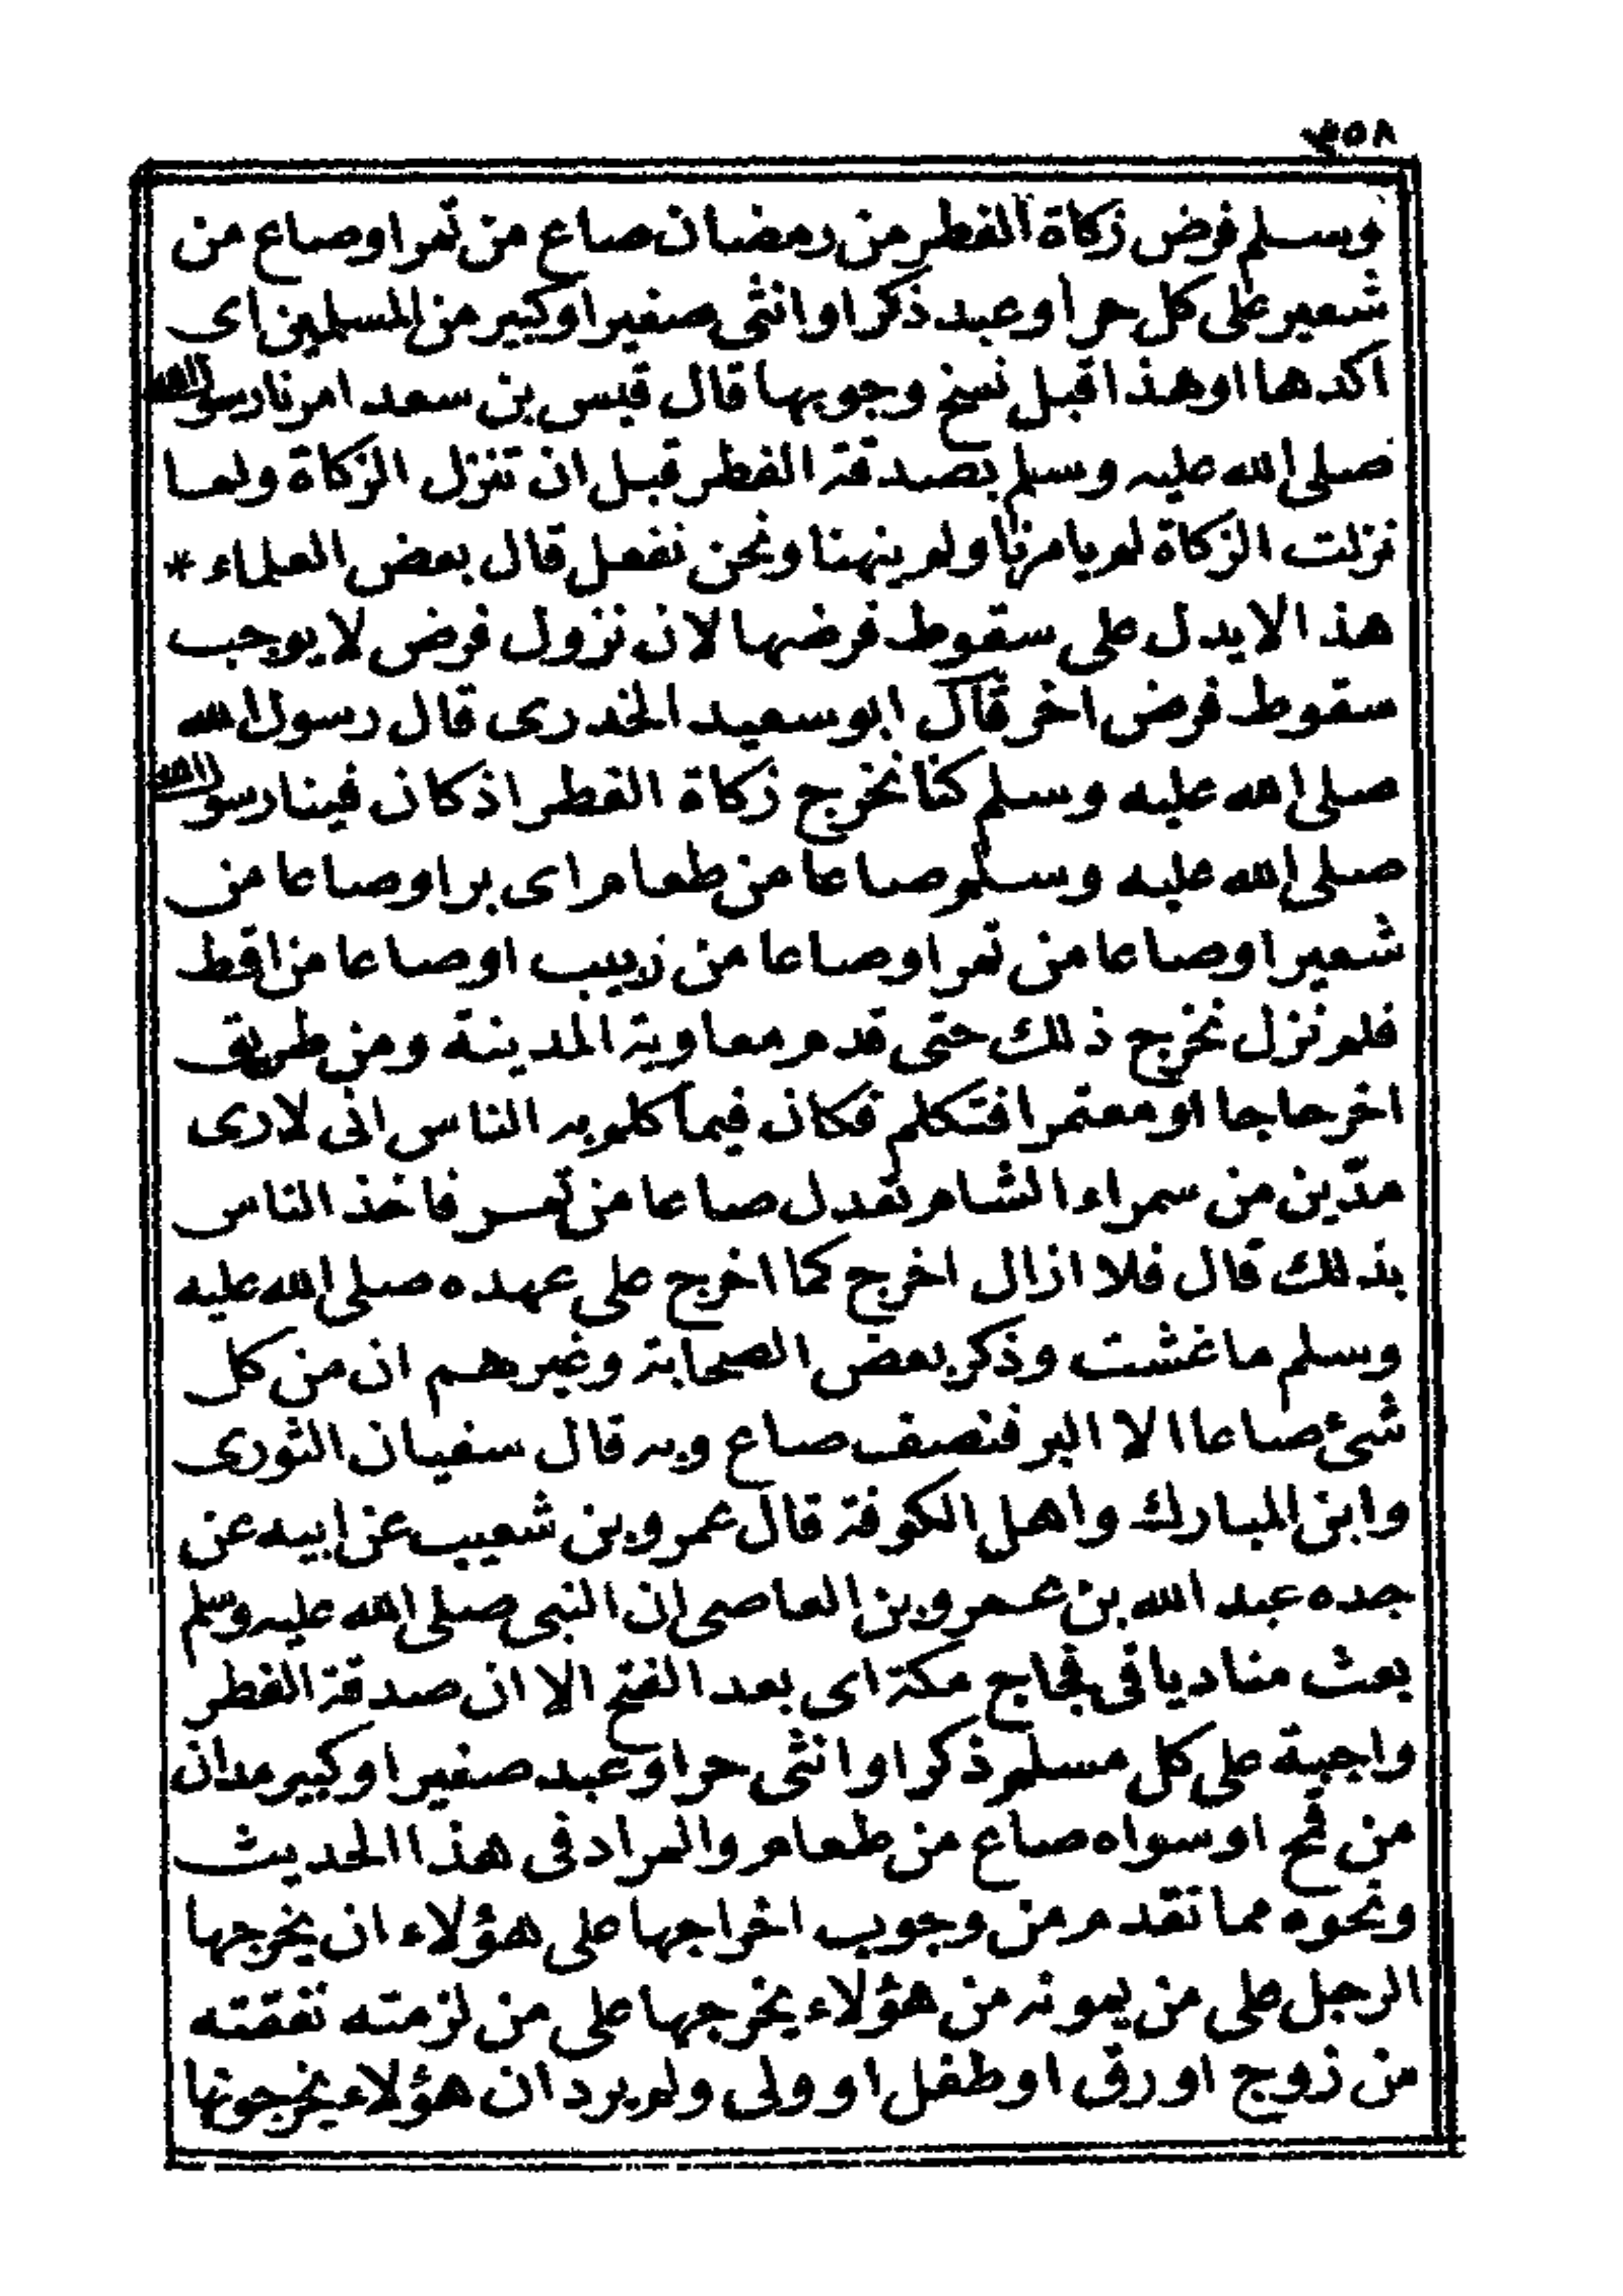 ٣٥٨
وسلم فرض زكاة الفطر من رمضان صاع من تمر او صاع من
شعير على كل حر او عبد ذكر او انثى صغير او كبير من المسلمين اى
اكدها او هذا قبل نسخ وجوبها قال قيس بن سعد امرنا رسول الله
صلى الله عليه وسلم بصدقة الفطر قبل ان تنزل الزكاة ولما
نزلت الزكاة لم يامرنا ولم ينهنا ونحن نفعل قال بعض العلماء *
هذا لا يدل على سقوط فرضها لان نزول فرض لا يوجب
سقوط فرض اخر قال ابو سعيد الخدرى قال رسول الله
صلى الله عليه وسلم كنا نخرج زكاة الفطر اذ كان فينا رسول الله
صلى الله عليه وسلم صاعا من طعام اى بر او صاعا من
شعير او صاعا من تمر او صاعا من زبيب او صاعا من اقط
فلم نزل نخرج ذلك حتى قدم معاوية المدينة ومن طريق
اخر حاجا او معتمرا فتكلم فكان فيما كلم به الناس انى لارى
مدّين من سمراء الشام تعدل صاعا من تمر فاخذ الناس
بذلك قال فلا ازال اخرج كما اخرج على عهده صلى الله عليه
وسلم ما عشت وذكر بعض الصحابة وغيرهم ان من كل
شئ صاعا الا البر فنصف صاع وبه قال سفيان الثورى
وابن المبارك واهل الكوفة قال عمرو بن شعيب عن ابيه عن
جده عبد الله بن عمرو بن العاصى ان النبى صلى الله عليه وسلم
بعث مناديا فى فجاج مكة اى بعد الفتح الا ان صدقة الفطر
واجبة على كل مسلم ذكر او انثى حر او عبد صغير او كبير مدان
من قمح او سواه صاع من طعام والمراد فى هذا الحديث
ونحوه مما تقدم من وجوب اخراجها على هؤلاء ان يخرجها
الرجل على من يمونه من هؤلاء يخرجها على من لزمته نفقته
من زوج او رق او طفل او ولى ولم يرد ان هؤلاء يخرجونها